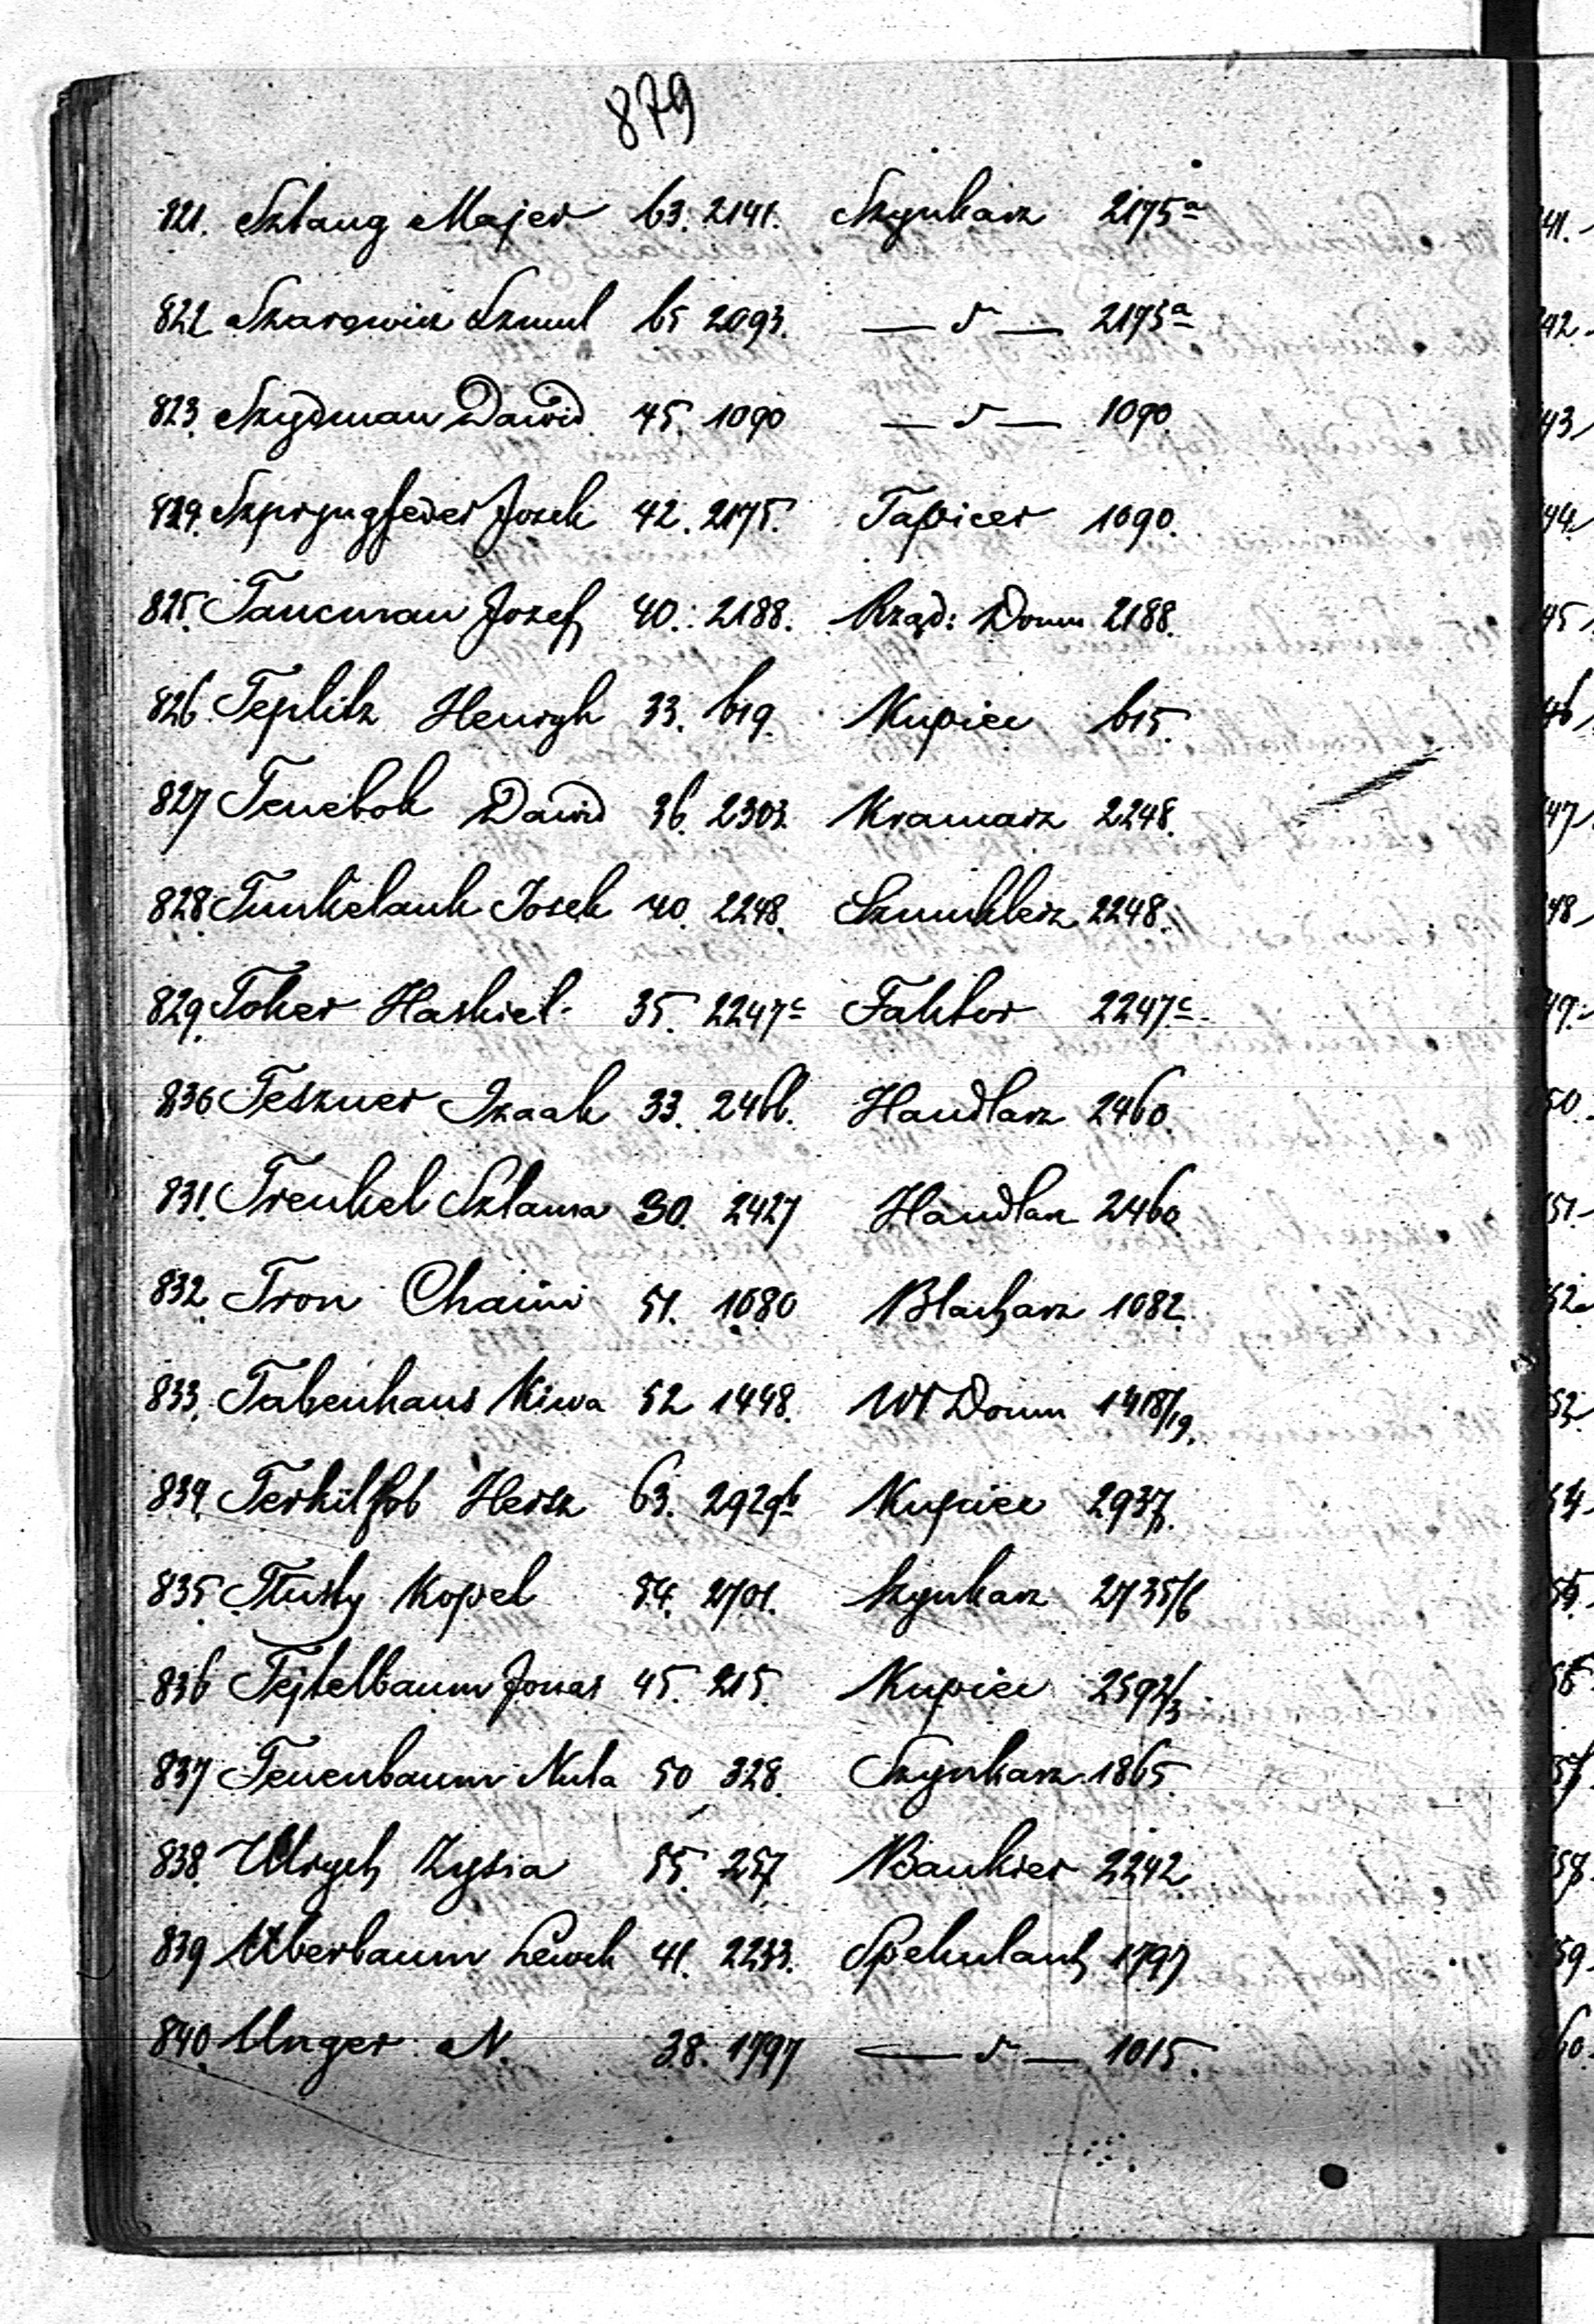 879
821. Sztang Majer 63. 2141. Szynkarz 2175a
822 Szarowicz Szmul 65 2093. — „ — 2175a
823. Szydman Dawid 45. 1090 — „ — 1090.
824. Szpryngfeder Josek 42. 2175. Tapicer 1090.
825. Tancman Jozef 40. 2188. Rząd: Domu 2188.
826. Teplitz Henryk 33. 619. Kupiec 615.
827 Tenebok Dawid 36. 2303. Kramarz 2248.
828. Tunkelank Josek 40. 2248. Szmuklerz 2248.
829. Toker Haskiel 35. 2247c Faktor 2247c
830 Teszner Izaak 33. 2466. Handlarz 2460.
831. Trenkel Szlama 30. 2427 Handlarz 2460
832 Tron Chaim 51. 1080 Blacharz 1082.
833. Tabenhaus Kiwa 52 1448. Wł Domu 1418/19.
834. Hersz 63. 2929b Kupiec 2937.
835. Tłusty Kopel 54. 2701. Szynkarz 2735/6
836 Tejtelbaum Jonas 45. 215. Kupiec 2592/3
837 Tenenbaum Nuta 50 328. Szynkarz 1865
838. Ulrych Zysia 55. 257 Bankier 2242
839 Uberbaum Lewek 41. 2233. Spekulant 1797
840. Unger N. 38. 1797 — „ — 1015.